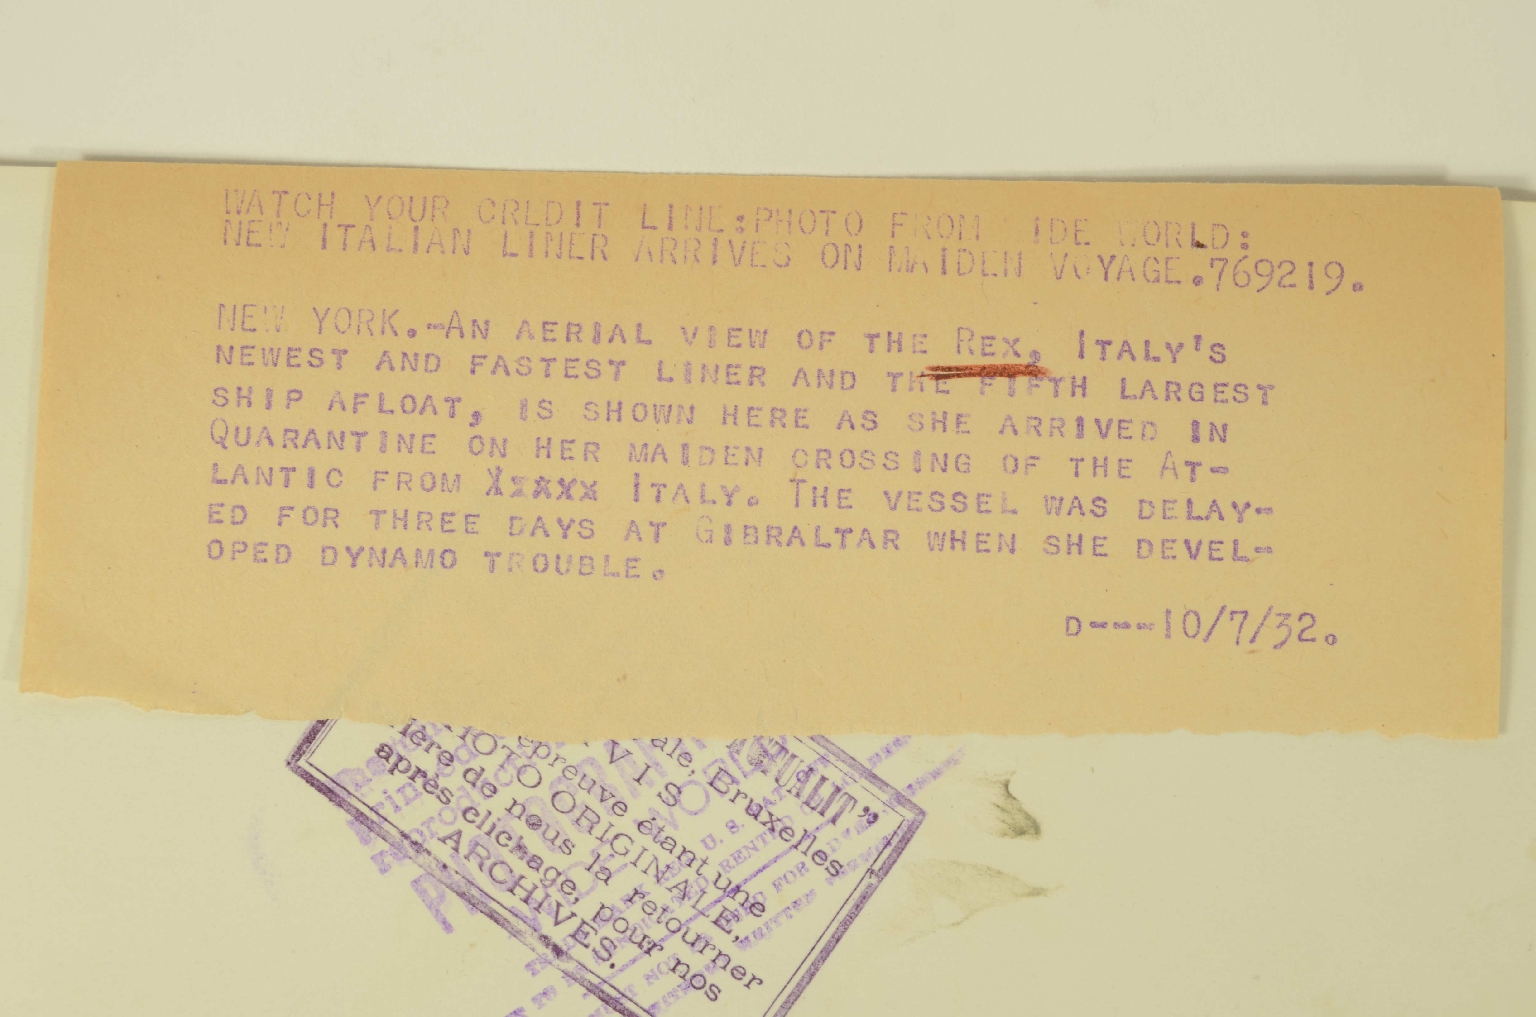 WATCH YOUR CREDIT LINE:PHOTO FROM IDE WORLD:
NEW ITALIAN LINER ARRIVES ON MAIDEN VOYAGE.769219.
NEW YORK.-AN AERIAL VIEW OF THE REX, ITALY'S
NEWEST AND FASTEST LINER AND THE FIFTH LARGEST
SHIP AFLOAT, IS SHOWN HERE AS SHE ARRIVED IN
QUARANTINE ON HER MAIDEN CROSSING OF THE AT-
LANTIC FROM XXXXX ITALY. THE VESSEL WAS DELAY-
ED FOR THREE DAYS AT GIBRALTAR WHEN SHE DEVEL-
OPED DYNAMO TROUBLE.
D---10/7/32.
ACTUALIT"
ale, Bruxelles
VIS
épreuve étant une
HOTO ORIGINALE,
ière de nous la retourner
après clichage, pour nos
ARCHIVES.